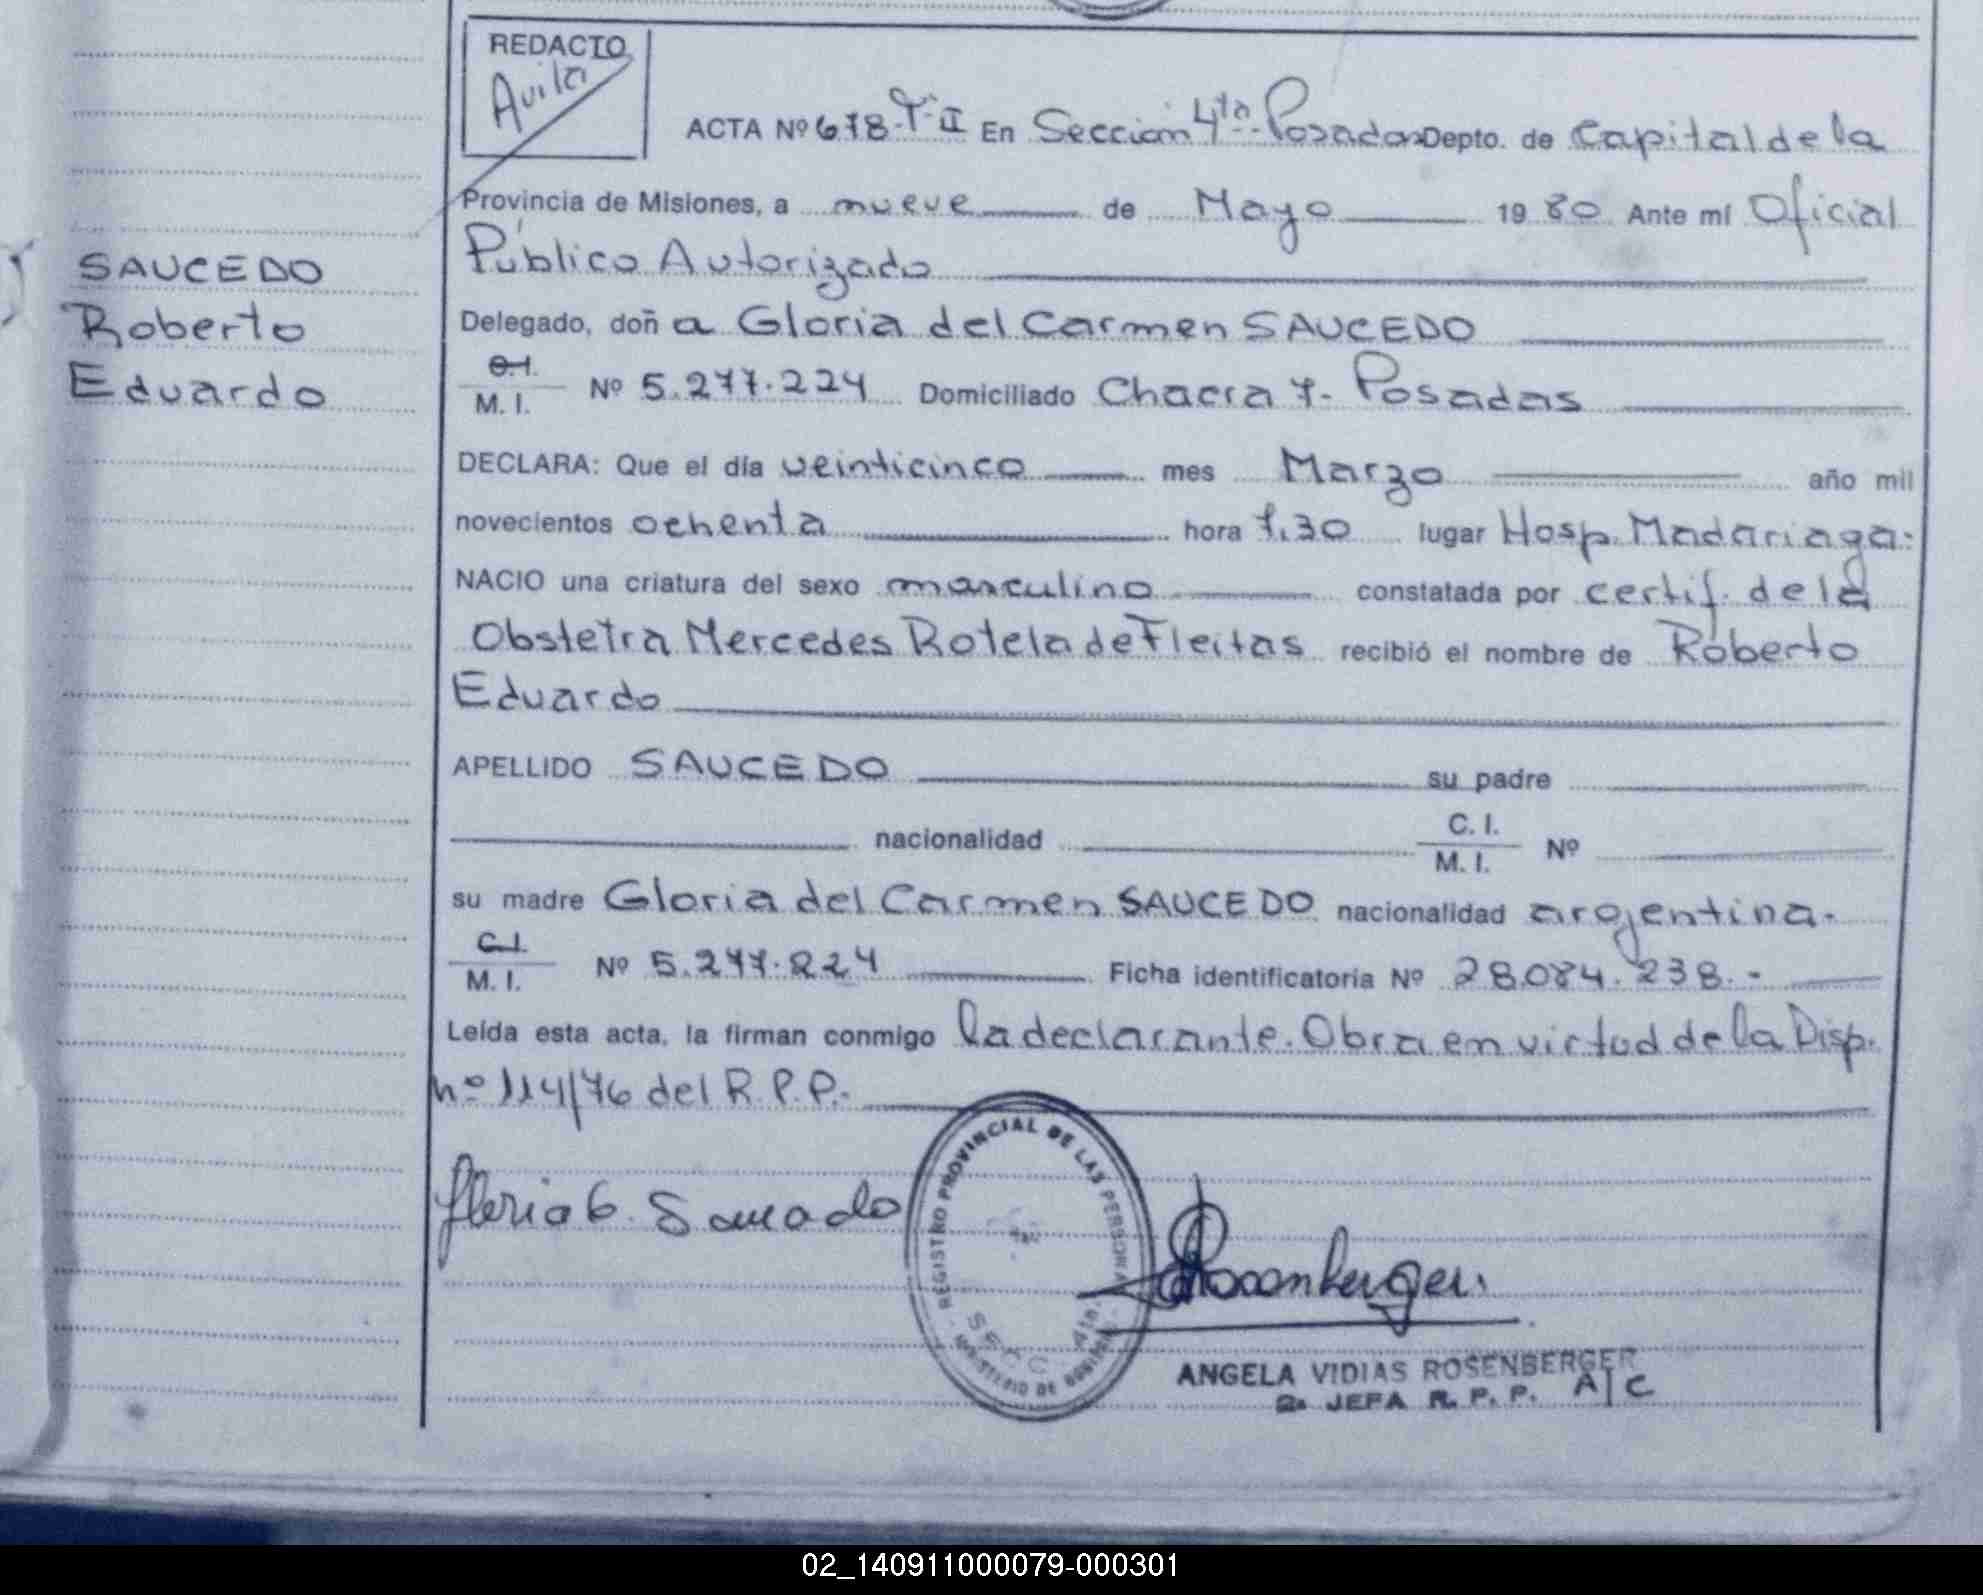 REDACTO
Avila
ACTA Nº 678-Tº II En Seccion 4ta.-Posadas Depto. de Capital de la
Provincia de Misiones, a nueve de Mayo 19 80 Ante mí Oficial
Público Autorizado
SAUCEDO
Roberto
Eduardo
Delegado, doñ a Gloria del Carmen SAUCEDO
C.I.
M. I. Nº 5.277.224 Domiciliado Chacra 7- Posadas
DECLARA: Que el día veinticinco mes Marzo año mil
novecientos ochenta hora 7,30 lugar Hosp. Madariaga:
NACIO una criatura del sexo masculino constatada por certif. de la
Obstetra Mercedes Rotela de Fleitas recibió el nombre de Roberto
Eduardo
APELLIDO SAUCEDO su padre
nacionalidad C. I. Nº
M. I.
su madre Gloria del Carmen SAUCEDO nacionalidad argentina.
C.I.
M. I. Nº 5.277.224 Ficha identificatoria Nº 28.084.238.-
Leída esta acta, la firman conmigo la declarante. Obra en virtud de la Disp.
nº 114/76 del R.P.P.-
Gloria C. Saucedo
REGISTRO PROVINCIAL DE LAS PERSONAS
SECC. 4ta.
MINISTERIO DE GOBIERNO
Rosenberger
ANGELA VIDIAS ROSENBERGER
2a JEFA R. P. P. A/C
02_140911000079-000301